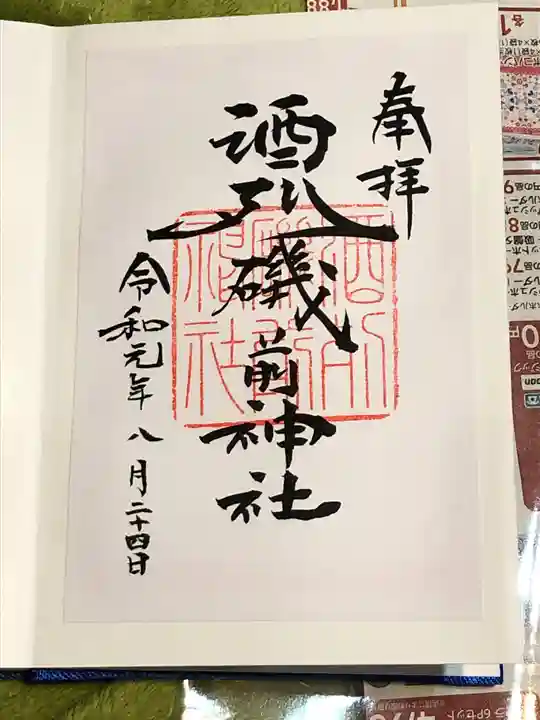 奉拝
酒列磯前神社
酒列
磯前
神社
令和元年八月二十四日